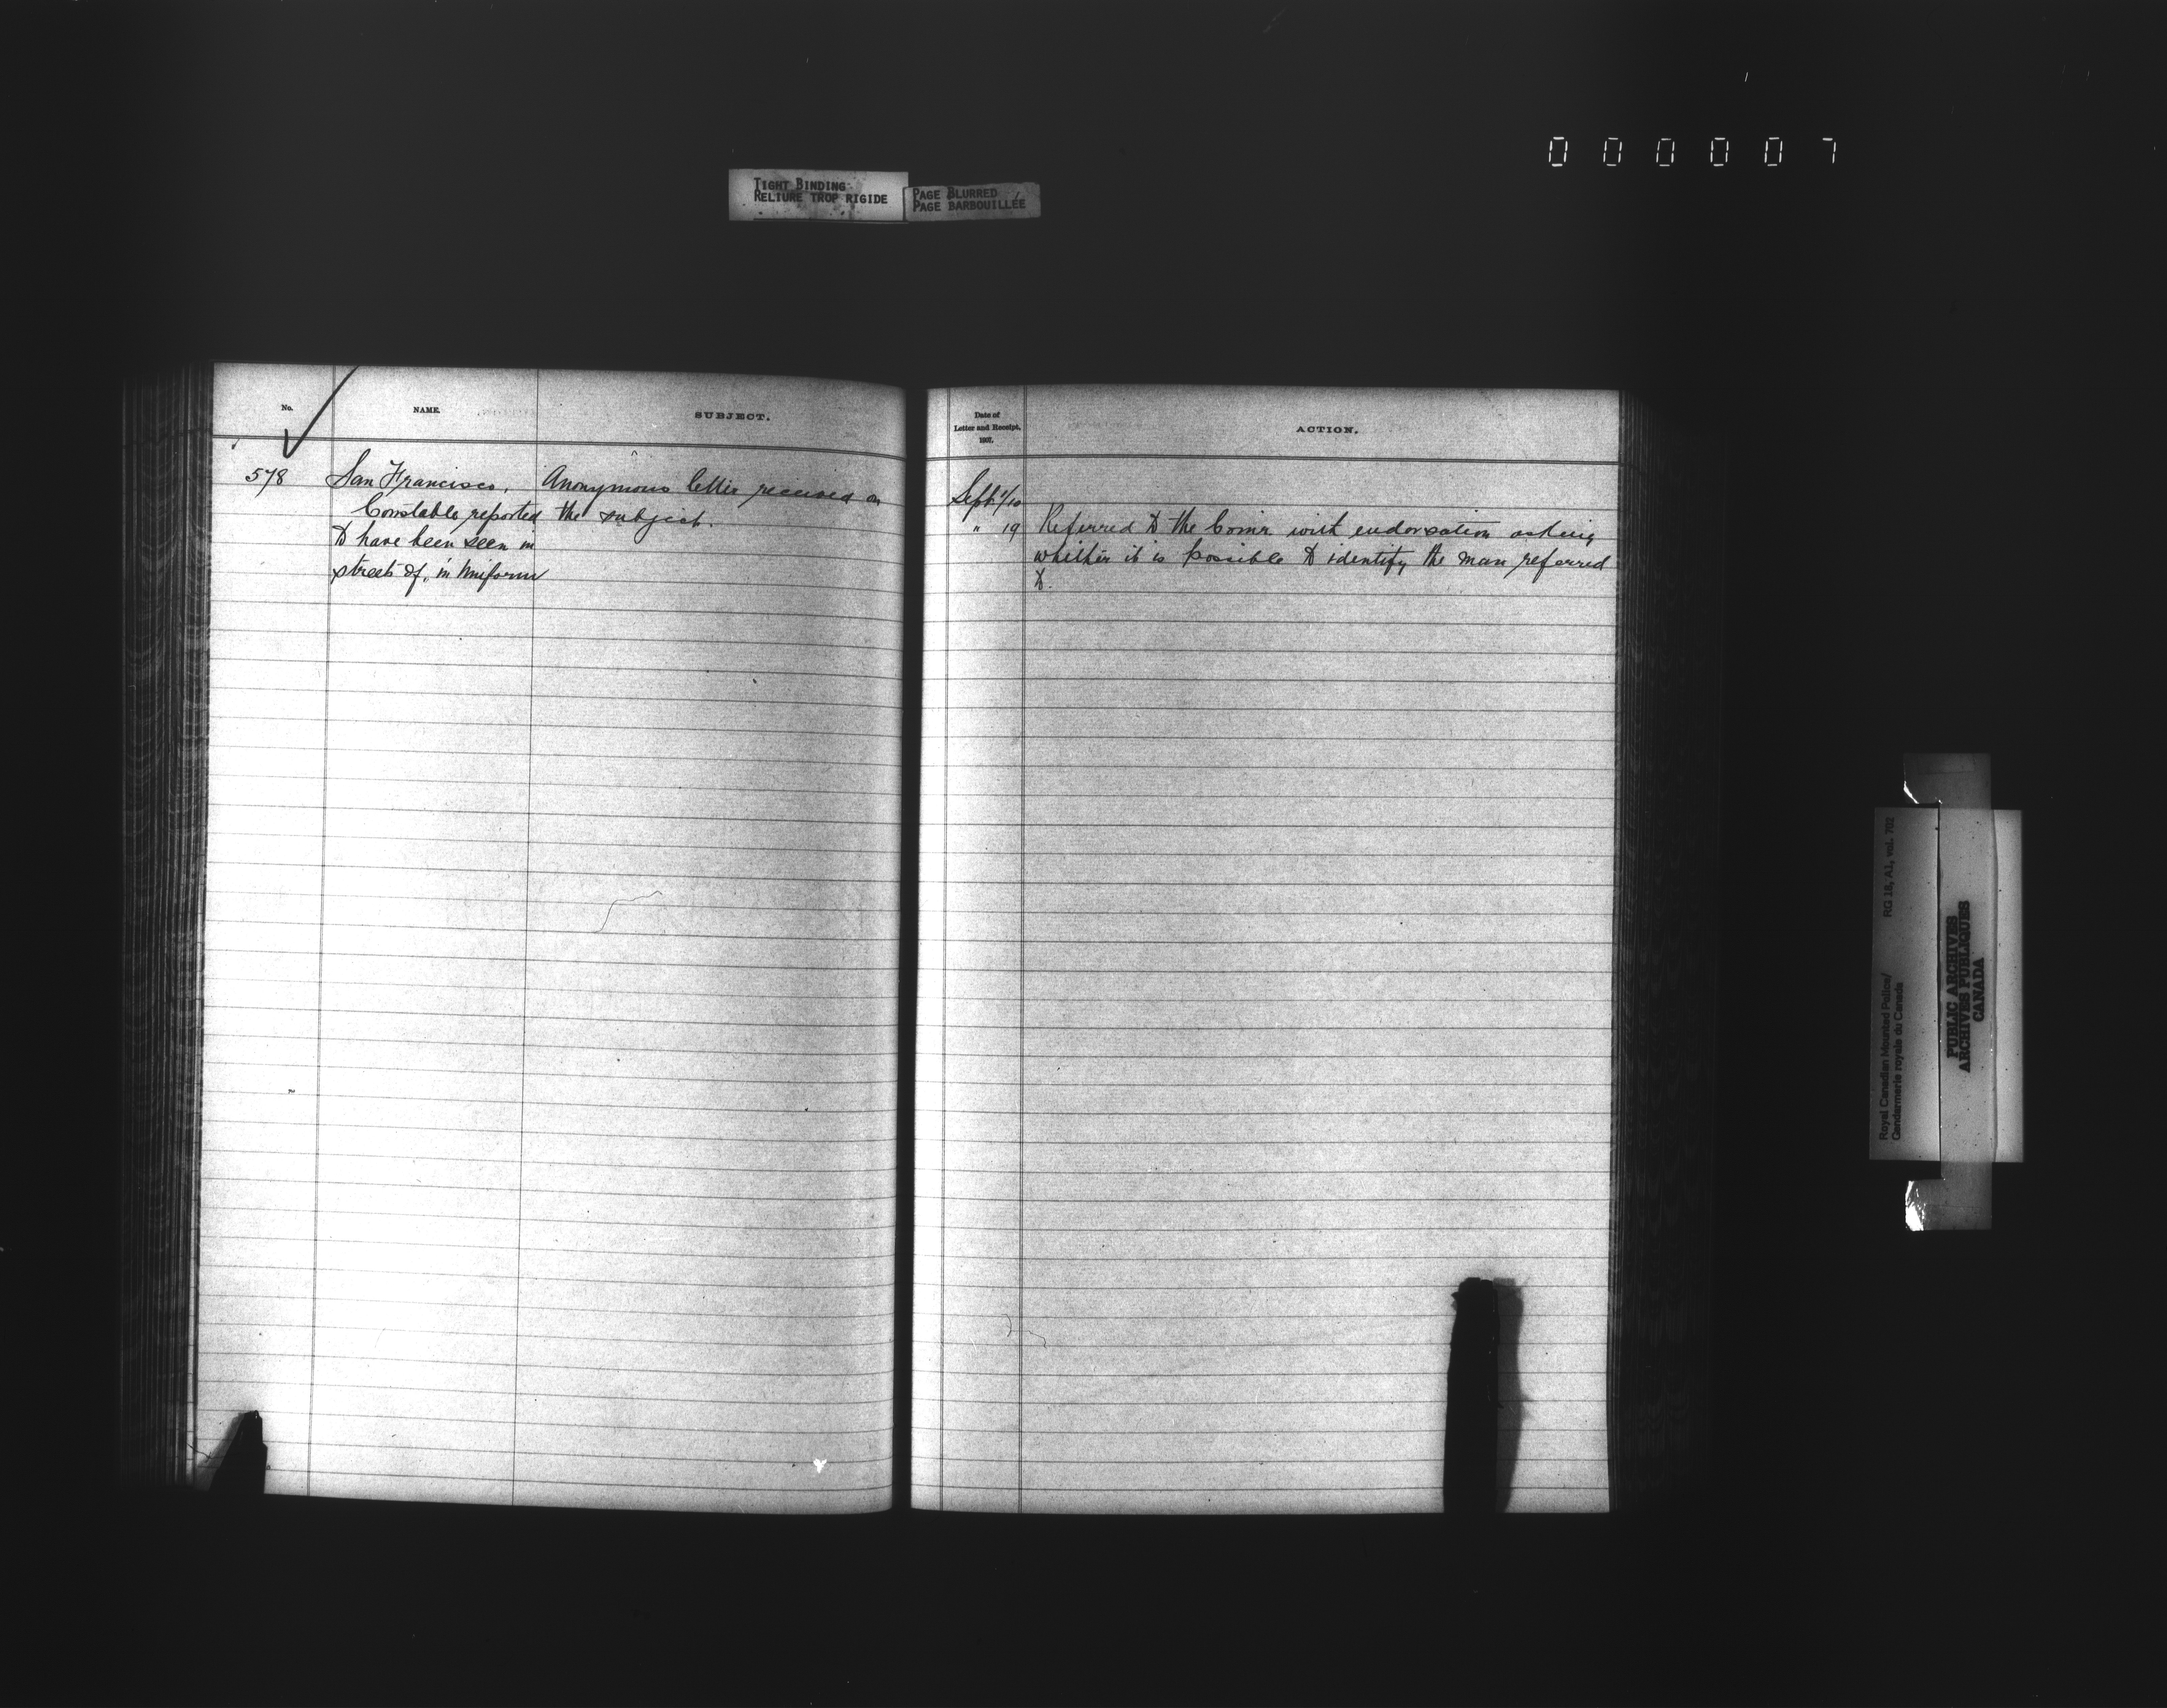 000007
TIGHT BINDING
RELIURE TROP RIGIDE
PAGE BLURRED
PAGE BARBOUILLÉE
No.
NAME.
SUBJECT.
578
San Francisco.
Constable reported
to have been seen in
streets of, in Uniform
Anonymous letter received on
the subject.
Date of
Letter and Receipt,
1907.
ACTION.
Sept 1/10
" 19
Referred to the Comr. with endorsation asking
whether it is possible to identify the man referred
to.
Royal Canadian Mounted Police/
Gendarmerie royale du Canada
RG 18, A1, vol. 702
PUBLIC ARCHIVES
ARCHIVES PUBLIQUES
CANADA